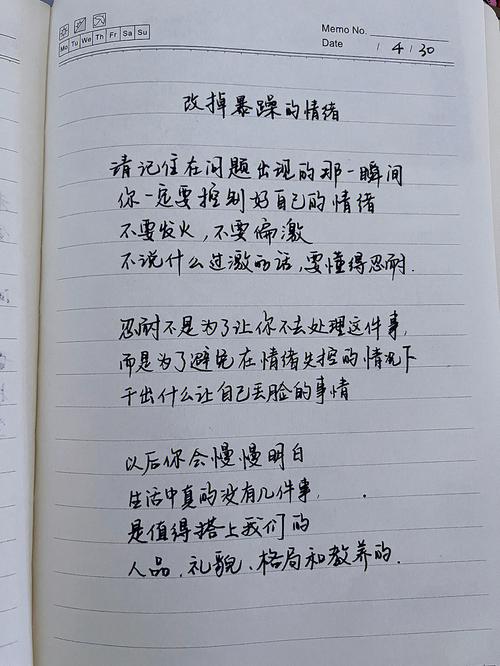 Memo No.
Mo Tu We Th Fr Sa Su
Date / 4 / 30
改掉暴躁的情绪
请记住在问题出现的那一瞬间
你一定要控制好自己的情绪
不要发火，不要偏激
不说什么过激的话，要懂得忍耐.
忍耐不是为了让你不去处理这件事，
而是为了避免在情绪失控的情况下
干出什么让自己丢脸的事情
以后你会慢慢明白
生活中真的没有几件事，
是值得搭上我们的
人品、礼貌、格局和教养的.